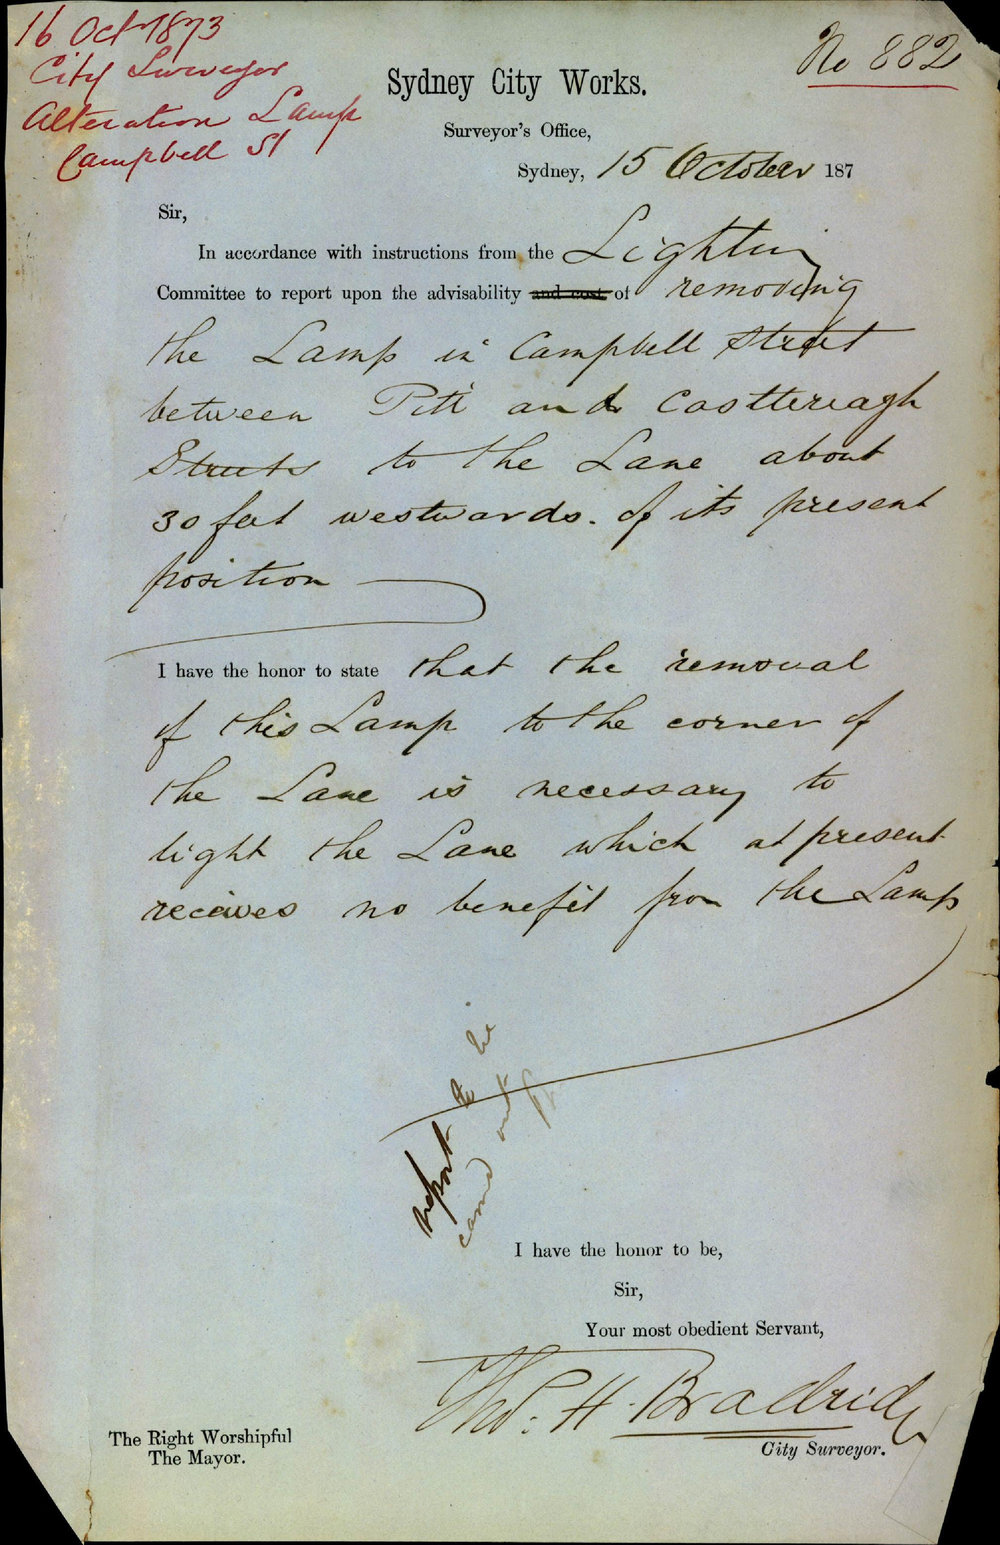 16 Oct 1873
City Surveyor
Alteration Lamp
Campbell St
No 882
Sydney City Works.
Surveyor's Office,
Sydney, 15 October 187
Sir,
In accordance with instructions from the Lighting
Committee to report upon the advisability and cost of removing
the Lamp in Campbell Street
between Pitt and Castlereagh
Streets to the Lane about
30 feet westwards. of its present
position
I have the honor to state that the removal
of this Lamp to the corner of
the Lane is necessary to
light the Lane which at present
receives no benefit from the Lamp
report to be
carried out
I have the honor to be,
Sir,
Your most obedient Servant,
Thos. H. Bradridge
City Surveyor.
The Right Worshipful
The Mayor.